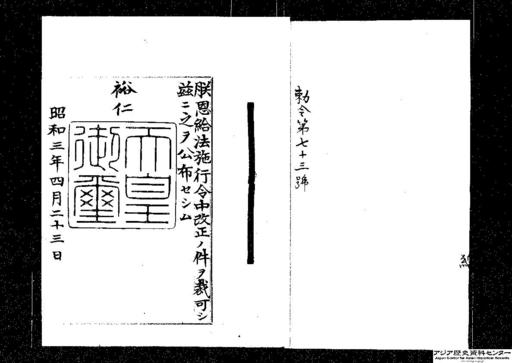 勅令第七十三號
朕恩給法施行令中改正ノ件ヲ裁可シ
茲ニ之ヲ公布セシム
裕仁
天皇
御璽
昭和三年四月二十三日
アジア歴史資料センター
Japan Center for Asian Historical Records